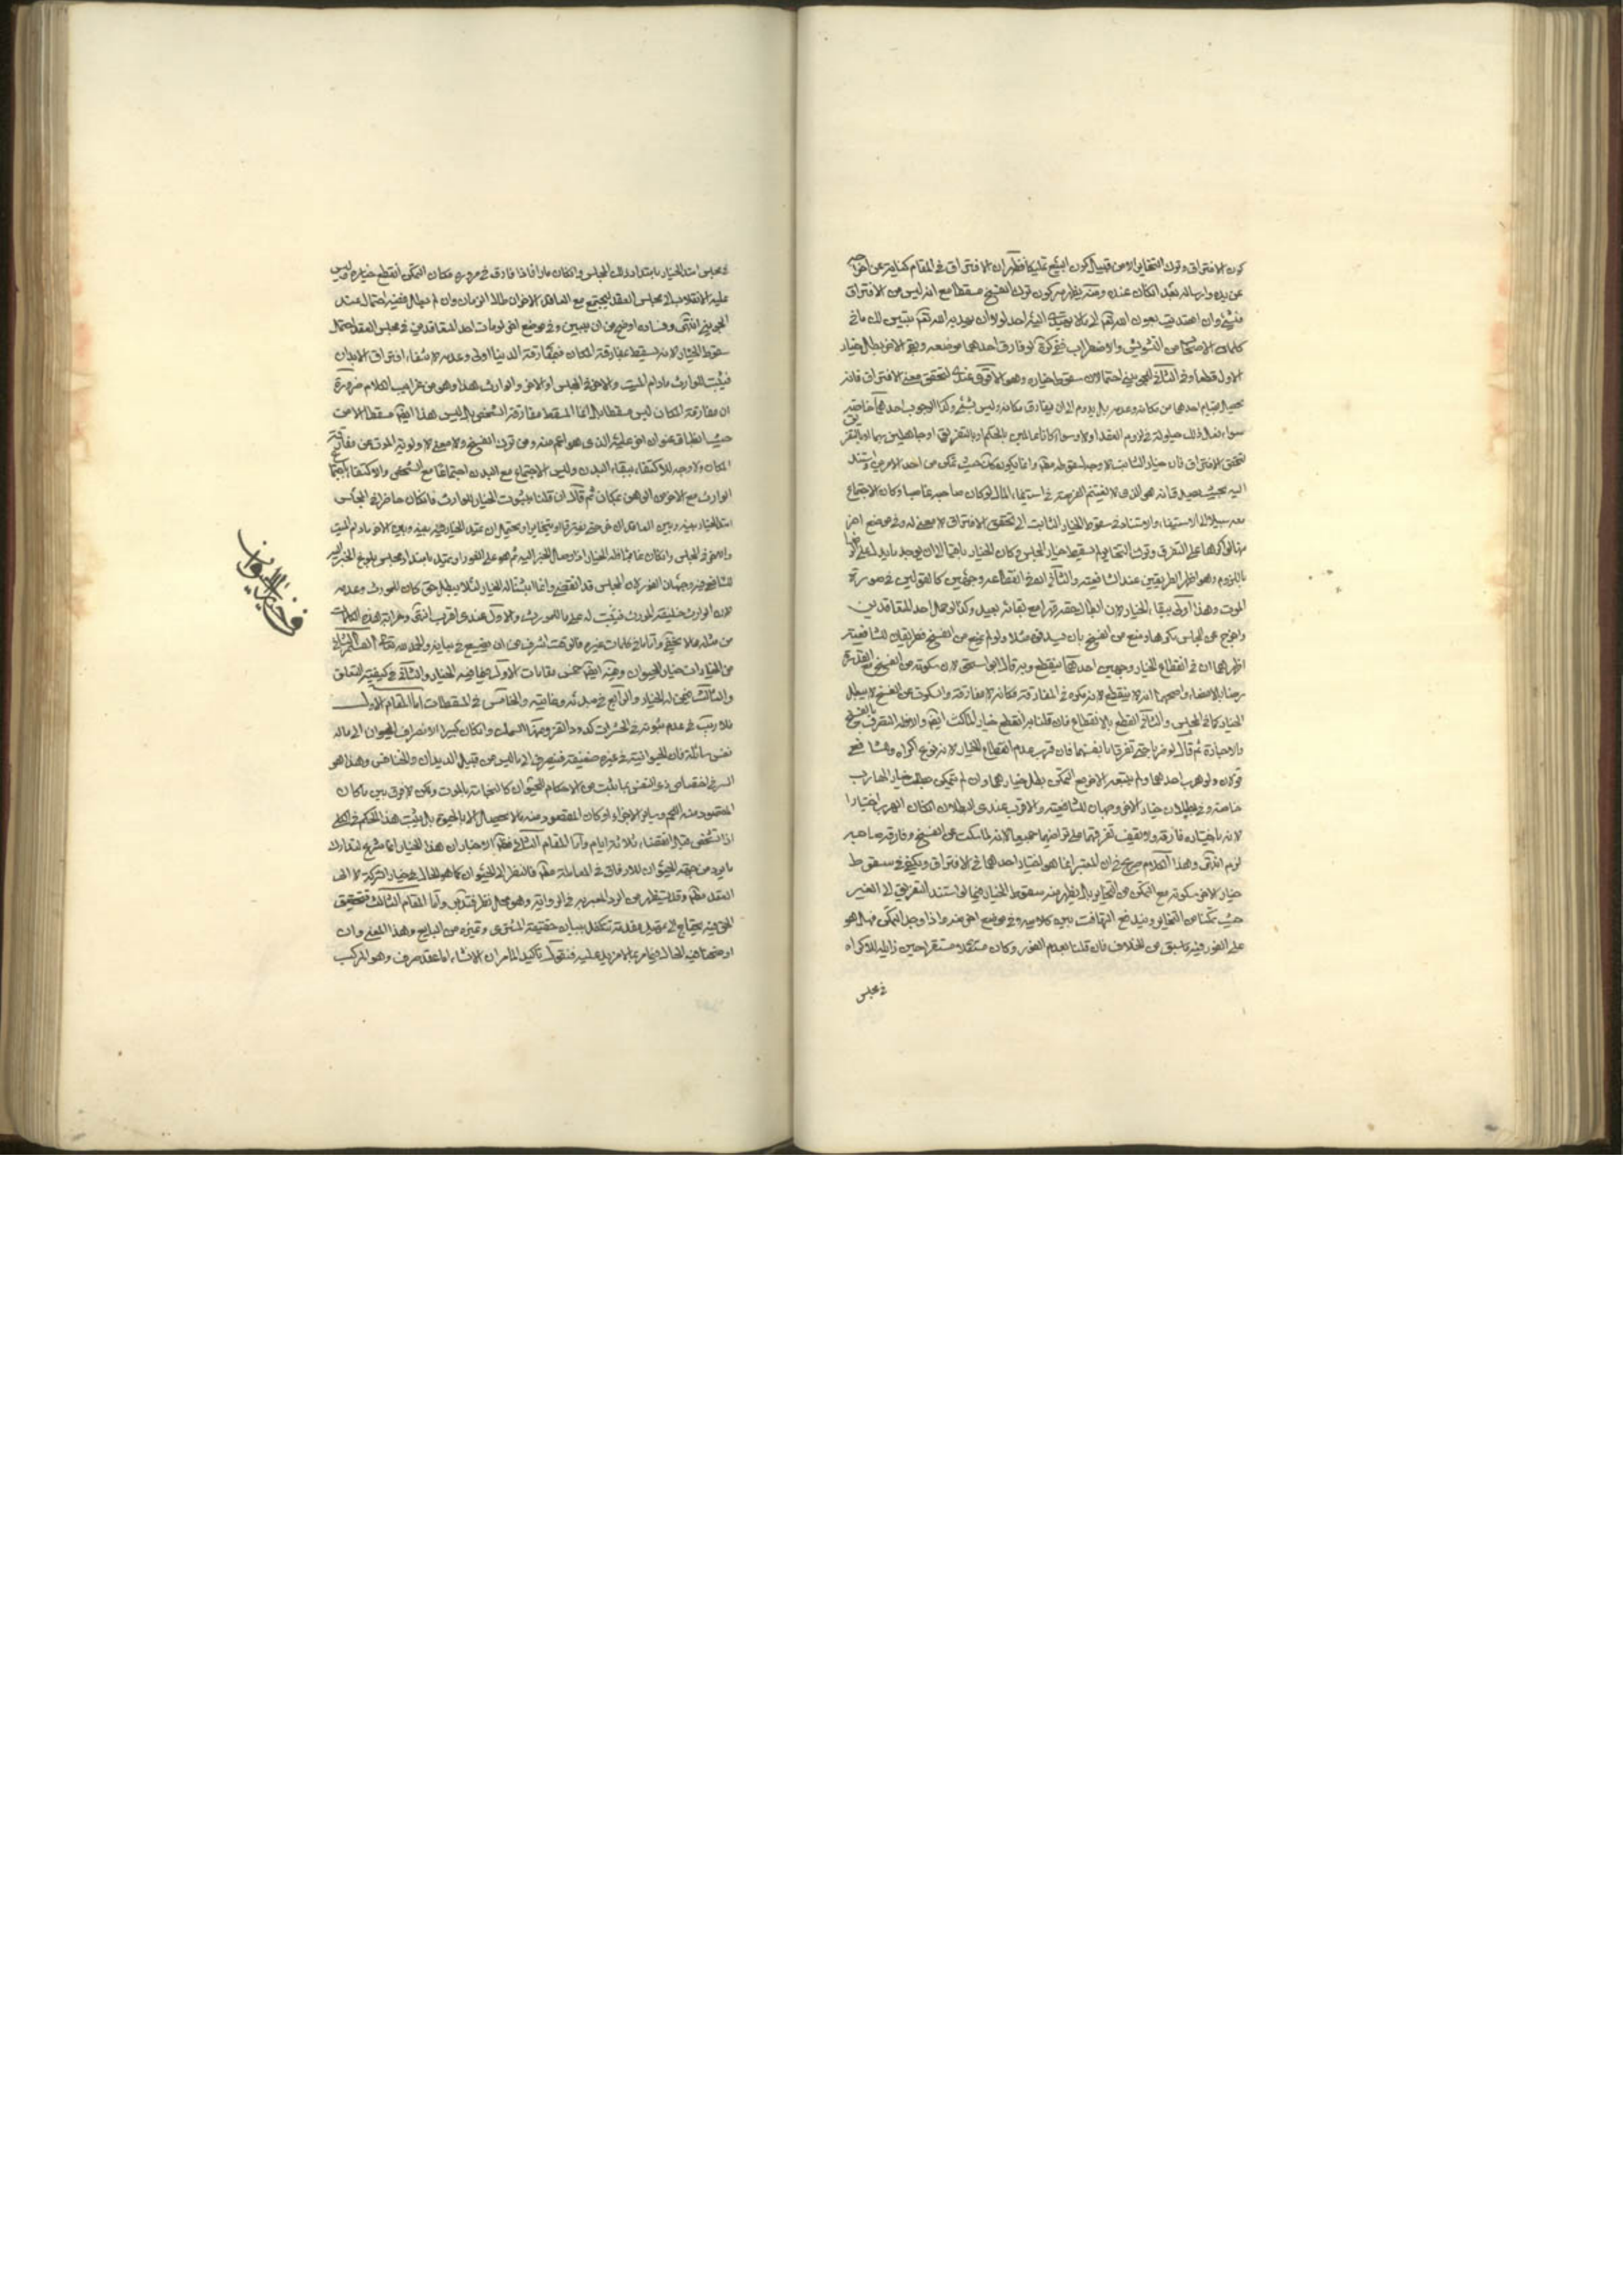 كون الافتراق وترك التخاير من قبيل كون البيع تمليكا فظهر ان الافتراق في المقام كناية عن
عن يده وارساله بعد ان كان عنده ومنه يظهر سر كون ترك الفسخ مسقطا مع انه ليس من الافتراق
في شيء وان اهتديت بعون الله تعم الى ما لا يهتدي اليه احد لولا ان يهديه الله تعم يتبين لك ما في
كلمات الاصحاب من التشويش والاضطراب ففي كرة لو فارق احدهما موضعه وبقى الاخر بطل خيار
الاول قطعا وفي الثاني للجويني احتمالان سقوط خياره وهو الاقوى عندي لتحقق معنى الافتراق فانه
يحصل بقيام احدهما من مكانه وعدمه بل يدوم الى ان يفارق مكانه وليس بشيء وكذا
سواء فعل ذلك حيلولة في لزوم العقد او لا وسواء كانا عالمين بالحكم او بالتفريق او جاهلين بهما او بالتفر
لتحقق الافتراق فان خيار الثابت لا وجه لسقوطه مقم وانما يكون كك حيث تمكن من احد الامرين
اليه بحيث يصدق انه هو الذي لا يغتنم الفرصة في استيفاء المال لو كان صاحبه غاصبا وكان الاجتماع
معه سبيلا الى الاستيفاء والاستناد في سقوط الخيار الثابت الى تحقق الافتراق لا معنى له وفي موضع اخر
منها لو اكرها على التفرق وترك التخاير لم يسقط خيار المجلس وكان الخيار باقيا الا ان يوجد ما يدل على
باللزوم وهو اظهر الطريقين عند الشافعية والثاني انه في انقطاعه وجهين كالقولين في صورة
الموت وهذا اولى ببقاء الخيار لان ابطال حقه قهرا مع بقائه بعيد وكذا لو حمل احد المتعاقدين
واخرج عن المجلس مكرها ومنع من الفسخ بان سد فمه مثلا ولو لم يمنع من الفسخ فطريقان للشافعية
اظهرهما ان في انقطاع الخيار وجهين احدهما ينقطع وبه قال ابو اسحق لان سكوته عن الفسخ مع القدرة
رضا بالامضاء واصحهما انه لا ينقطع لانه مكره في المفارقة فكانه لا مفارقة والسكوت عن الفسخ لا يبطل
الخيار كما في المجلس والثاني القطع بالانقطاع فان قلنا به انقطع خيار الماكث ايضم والا فله التصرف بالفسخ
والاجازة ثم قال لو ضربا حتى تفرقا بانفسهما فان قرب عدم انقطاع الخيار لانه نوع اكراه وللشافعي
قولان ولو هرب احدهما ولم يتبعه الاخر مع التمكن بطل خيارهما وان لم يتمكن بطل خيار الهارب
خاصة وفي بطلان خيار الاخر وجهان للشافعية والاقرب عندي البطلان ان كان الهرب اختيارا
لانه باختياره فارقه ولا يقف تفرقهما على تراضيهما جميعا لانه لما سكت عن الفسخ وفارقه صاحبه
لزم انتهى وهذا الكلام صريح في ان المعتبر انما هو اختيار احدهما في الافتراق ويكفي في سقوط
خيار الاخر سكوته مع التمكن من التخاير بل يظهر منه سقوط الخيار فيما لو استند التفريق الى الغير
حيث تمكنا من التخاير وفيه يتضح التهافت بين كلاميه وفي موضع اخر منه واذا وجد التمكن فهل هو
على الفور فيه ما سبق من الخلاف فان قلنا بعدم الفور وكان مستقرا حين زايله الاكراه
في مجلس
في مجلس امتد الخيار بامتداد ذلك المجلس وان كان مارا فاذا فارق في مروره مكان التمكن انقطع خياره وليس
عليه الانقلاب الى مجلس العقد ليجتمع مع العاقد الاخر ان طال الزمان وان لم يطل ففيه احتمال عند
الجويني انتهى وفساده اوضح من ان يبين وفي موضع اخر لو مات احد المتعاقدين في مجلس العقد احتمال
سقوط الخيار لانه يسقط بمفارقة المكان فبمفارقة الدنيا اولى وعدمه لانتفاء افتراق الابدان
فيثبت للوارث ما دام الميت والاخر في المجلس او الاخر والوارث هذا وهو من غرايب الكلام ضرورة
ان مفارقة المكان ليس مسقطا بل انما المسقط مفارقة الشخص بل ليس هذا ايضم مسقطا الا من
حيث انطباق عنوان اخر عليه الذي هو اعم منه ومن ترك الفسخ ولا معنى لاولوية الموت عن مفارقة
المكان ولا وجه للاكتفاء ببقاء البدن وليس الاجتماع مع البدن اجتماعا مع الشخص والاكتفاء باجتماع
الوارث مع الاخر من الوهن بمكان ثم قال ان قلنا بثبوت الخيار للوارث فان كان حاضرا في المجلس
امتد الخيار بينه وبين العاقد الاخر حتى يفترقا او يتخايرا ويحتمل ان يمتد الخيار بينه وبين الاخر ما دام الميت
والاخر في المجلس وان كان غائبا فله الخيار اذا وصل الخبر اليه ثم هو على الفور او يمتد بامتداد مجلس بلوغ الخبر اليه
للشافعي فيه وجهان الفور لان المجلس قد انقضى وانما اثبتنا له الخيار لئلا يبطل حق كان للمورث وعدمه
لان الوارث خليفة المورث فيثبت له على ما للمورث والاول عندي اقرب انتهى وغرابة هذه الكلمات
من مثله مما لا يخفى واما ما في كلمات غيره فالوقت اشرف من ان يضيع في بيانه والحمد لله تعم القسم الثاني
من الخيارات خيار الحيوان وفيه ايضم خمس مقامات الاول فيما فيه الخيار والثاني في كيفية التعلق
والثالث فيمن له الخيار والرابع في مبدئه وغايته والخامس في المسقطات اما المقام الاول
فلا ريب في عدم ثبوته في الحشرات كدود القز ومنها السمك وان كان كبيرا لانصراف الحيوان الى ما له
نفس سائلة فان الحيوانية في غيره ضعيفة فينصرف الى ما ليس من قبيل الديدان والخنافس وهذا هو
السر في اختصاص ذي النفس بما يثبت من الاحكام للحيوان كالنجاسة بالموت ولكن لا فرق بين ما كان
المقصود منه اللحم وساير الاجزاء او كان المقصود منه ما لا يحصل الا بالحيوة بل يثبت هذا الحكم في الكلي
اذا تشخص قبل انقضاء ثلاثة ايام واما المقام الثاني فظهر الاخبار ان هذا الخيار انما شرع لتدارك
ما يرد من جهة الحيوان للارفاق في المعاملة مقم فالنظر الى الحيوان كما هو الحال في خيار الشركة لا الى
العقد مقم وقد يظهر من الرد المعبر به في الرواية وهو محل نظر فتدبر واما المقام الثالث فتحقيق
الحق فيه يحتاج الى تمهيد مقدمة تتكفل ببيان حقيقة المشتري وتميزه من البايع وهذا المعنى وان
اوضحنا فيه الحال فيما مر بما لا مزيد عليه فنقول تأكيدا للمرام ان الانشاء اما عقد صرف وهو المركب
في خيار الحيوان